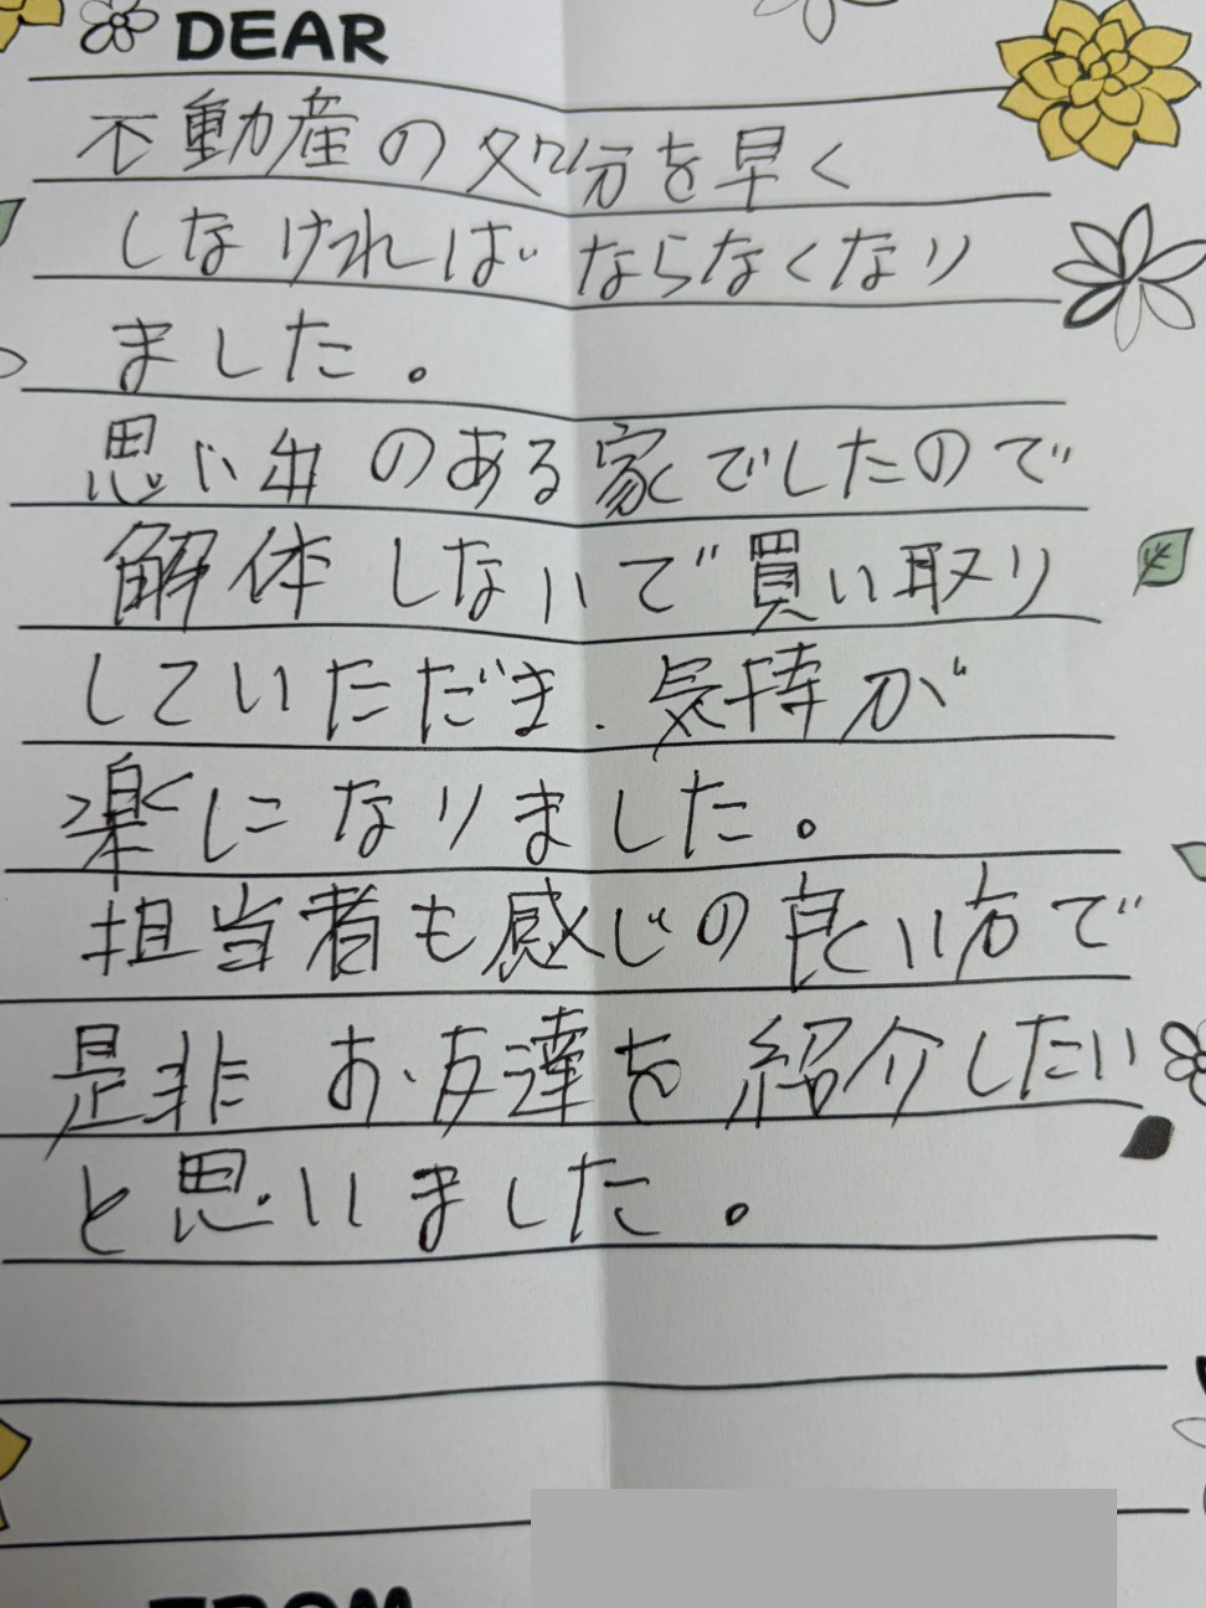 DEAR
不動産の処分を早く
しなければならなくなり
ました。
思い出のある家でしたので
解体しないで買い取り
していただき、気持が
楽になりました。
担当者も感じの良い方で
是非お友達を紹介したい
と思いました。
FROM